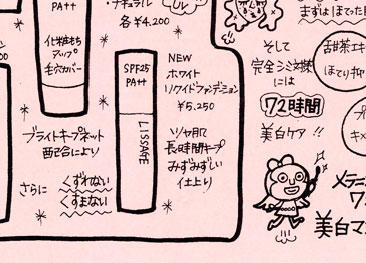 PA++
・ナチュラル
各¥4,200
UV
化粧もち
アップ
毛穴カバー
SPF25
PA++
LISSAGE
NEW
ホワイト
リクイドファンデーション
¥5,250
ツヤ肌で
長時間キープ
みずみずしい
仕上り
ブライトキープネット
配合により
さらに
くずれない
くすまない
まずはほてった
そして
完全シミ対策
には
72時間
美白ケア!!
甜茶エキ
ほてり抑
メラニ
美白マ